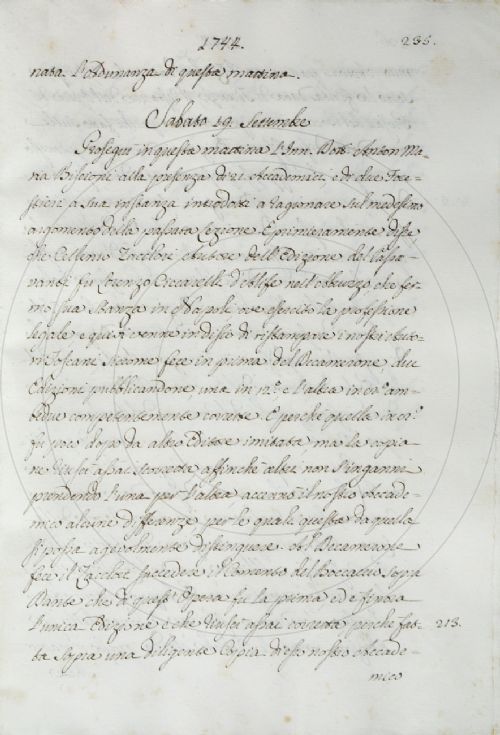 1744. 235.
nata l'Adunanza di questa mattina.
Sabato 19. Settembre
Proseguì in questa mattina l'Inn. Dott. Anton Ma-
ria Biscioni alla presenza di 21 Accademici e di due Fore-
stieri a sua instanza introdotti a ragionare sul medesimo
argomento della passata Lezione. E primieramente disse
che Cellenio Zacclori Autore dell'Edizione del Passa-
vanti fu Lorenzo Ciccarelli d'Atessa nell'Abruzzo che fer-
mò sua Stanza in Napoli ove esercitò la professione
legale e quivi venne in disio di ristampare i nostri Auto-
ri Toscani siccome fece in prima del Decamerone, due
Edizioni pubblicandone una in 12.º e l'altra in 8.º am-
bedue competentemente corrette. E perchè quella in 8.º
fu poco dopo da altro Editore imitata ma la copia
ne riuscì assai scorretta affinchè altri non s'inganni
prendendo l'una per l'altra accennò il nostro Accade-
mico alcune differenze per le quali questa da quella
si possa agevolmente distinguere. Al Decamerone
fece il Zacclori succedere il Comento del Boccaccio sopra
Dante che di quest'Opera fu la prima ed è finora
l'unica Edizione e che riuscì assai corretta perchè fat- 213.
ta sopra una diligente Copia di esso nostro Accade-
mico